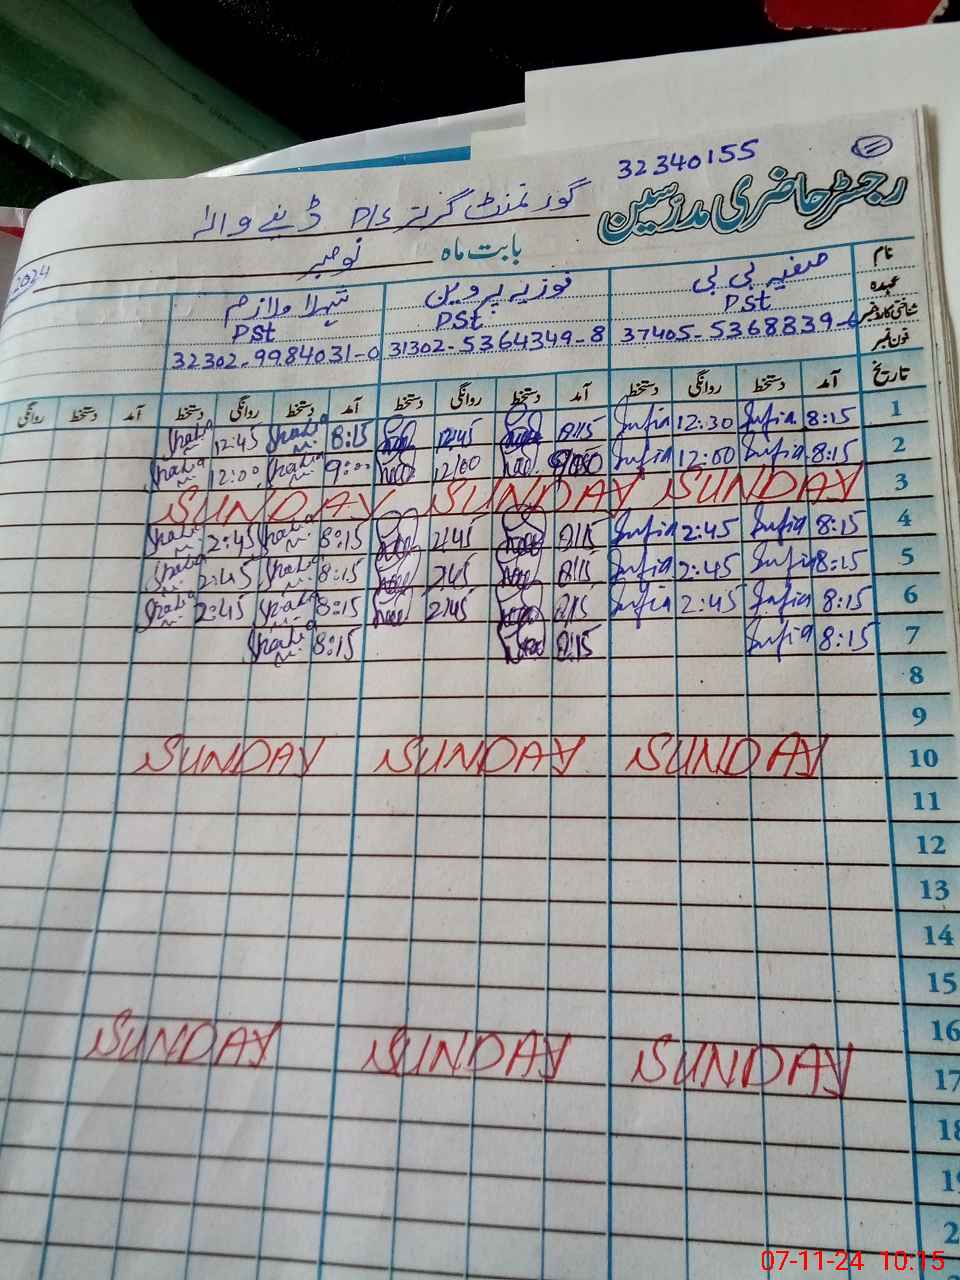 32340155
رجسٹر حاضری مدرسین گورنمنٹ گرلز P/S ڈینے والا
بابت ماہ نومبر 2024
نام صفیہ بی بی فوزیہ پروین شہلا ملازم
عہدہ PSt PSt PSt
شناختی کارڈ نمبر 37405-5368839-6 31302-5364349-8 32302-9984031-0
فون نمبر
تاریخ آمد دستخط روانگی دستخط آمد دستخط روانگی دستخط آمد دستخط روانگی دستخط آمد دستخط روانگی
1 8:15 Sufia 12:30 Sufia 8:15 12:45 8:15 Shahla 12:45 Shahla
2 8:15 Sufia 12:00 Sufia 12:00 9:00 Shahla 12:00 Shahla
3 SUNDAY SUNDAY SUNDAY
4 8:15 Sufia 2:45 Sufia 8:15 2:45 8:15 Shahla 2:45 Shahla
5 8:15 Sufia 2:45 Sufia 8:15 2:45 8:15 Shahla 2:45 Shahla
6 8:15 Sufia 2:45 Sufia 8:15 2:45 8:15 Shahla 2:45 Shahla
7 8:15 Sufia 8:15 8:15 Shahla
8
9
10 SUNDAY SUNDAY SUNDAY
11
12
13
14
15
16
17 SUNDAY SUNDAY SUNDAY
18
07-11-24 10:15